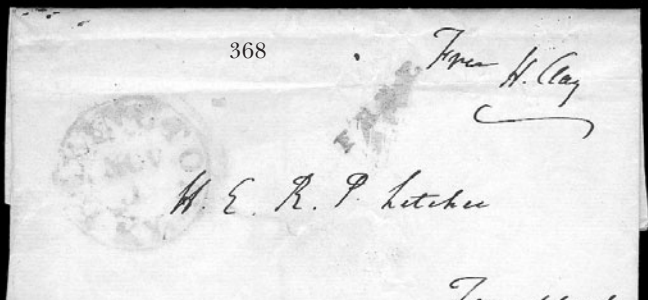 368
Free H. Clay
FREE
LEXINGTON
NOV
KY
H. E. R. P. Letcher